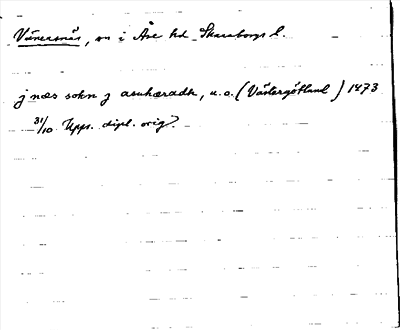 Vänersnäs, sn i Åse hd Skaraborgs l.
j næs sokn j asuhæradh, u.o. (Västergötland) 1473
31/10 Upps. dipl. orig?